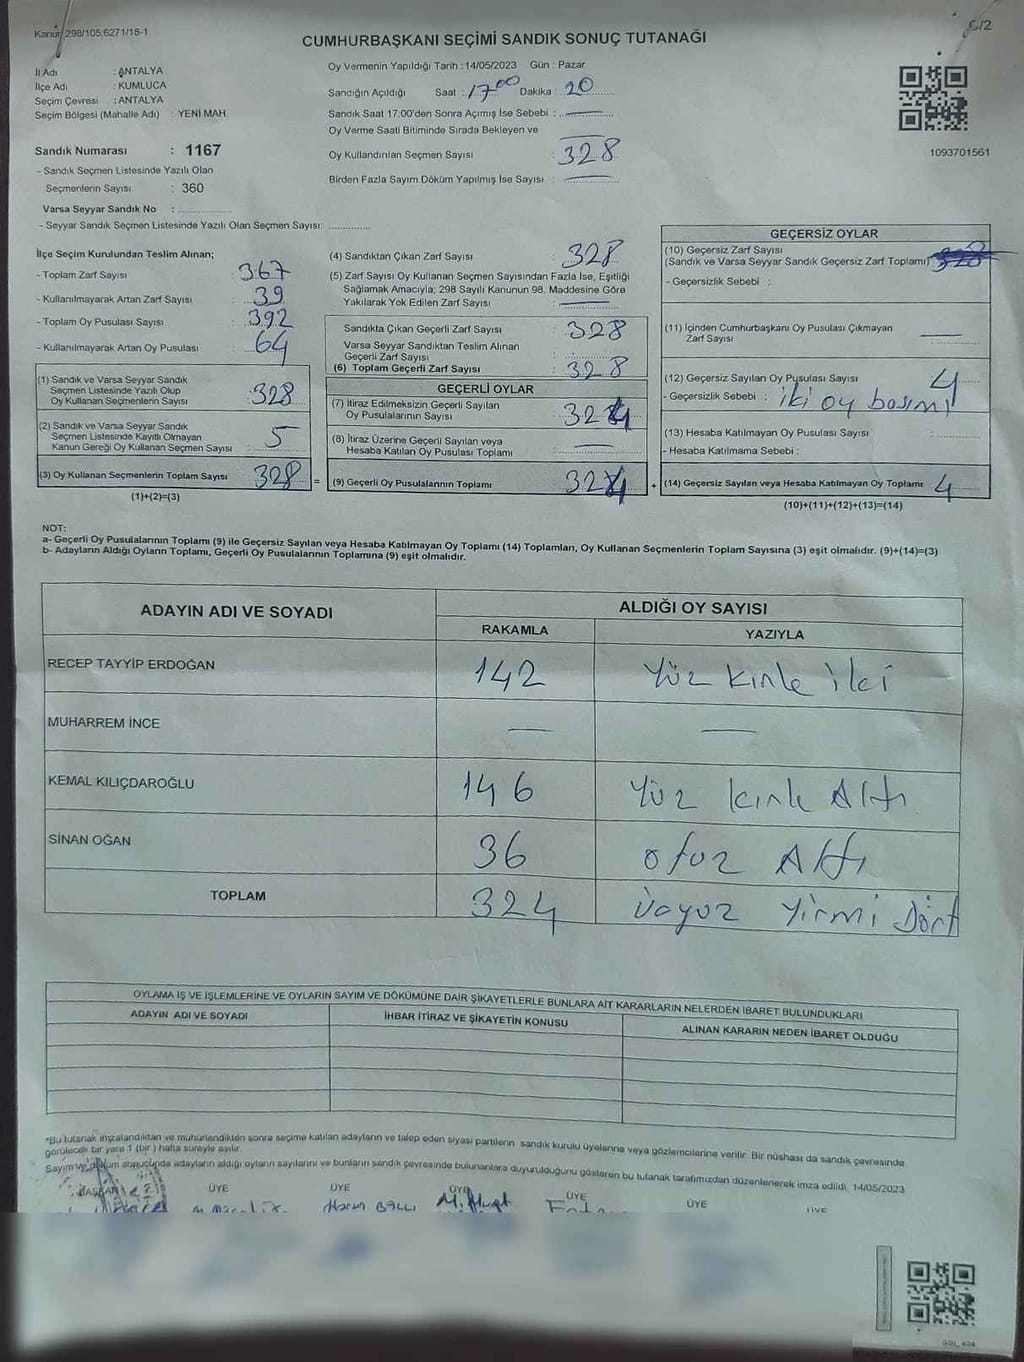 Kanun 298/105;6271/18-1
C/2
CUMHURBAŞKANI SEÇİMİ SANDIK SONUÇ TUTANAĞI
İl Adı : ANTALYA
İlçe Adı : KUMLUCA
Seçim Çevresi : ANTALYA
Seçim Bölgesi (Mahalle Adı) : YENİ MAH.
Sandık Numarası : 1167
- Sandık Seçmen Listesinde Yazılı Olan
Seçmenlerin Sayısı : 360
Varsa Seyyar Sandık No :
- Seyyar Sandık Seçmen Listesinde Yazılı Olan Seçmen Sayısı:
Oy Vermenin Yapıldığı Tarih :14/05/2023 Gün : Pazar
Sandığın Açıldığı Saat : 17 00 Dakika : 20
Sandık Saat 17:00'den Sonra Açımış İse Sebebi :
Oy Verme Saati Bitiminde Sırada Bekleyen ve
Oy Kullandırılan Seçmen Sayısı : 328
Birden Fazla Sayım Döküm Yapılmış İse Sayısı :
1093701561
İlçe Seçim Kurulundan Teslim Alınan;
- Toplam Zarf Sayısı : 367
- Kullanılmayarak Artan Zarf Sayısı : 39
- Toplam Oy Pusulası Sayısı : 392
- Kullanılmayarak Artan Oy Pusulası : 64
(1) Sandık ve Varsa Seyyar Sandık
Seçmen Listesinde Yazılı Olup
Oy Kullanan Seçmenlerin Sayısı : 328
(2) Sandık ve Varsa Seyyar Sandık
Seçmen Listesinde Kayıtlı Olmayan
Kanun Gereği Oy Kullanan Seçmen Sayısı : 5
(3) Oy Kullanan Seçmenlerin Toplam Sayısı 328 =
(1)+(2)=(3)
(4) Sandıktan Çıkan Zarf Sayısı : 328
(5) Zarf Sayısı Oy Kullanan Seçmen Sayısından Fazla İse, Eşitliği
Sağlamak Amacıyla; 298 Sayılı Kanunun 98. Maddesine Göre
Yakılarak Yok Edilen Zarf Sayısı :
Sandıkta Çıkan Geçerli Zarf Sayısı : 328
Varsa Seyyar Sandıktan Teslim Alınan
Geçerli Zarf Sayısı :
(6) Toplam Geçerli Zarf Sayısı : 328
GEÇERLİ OYLAR
(7) İtiraz Edilmeksizin Geçerli Sayılan
Oy Pusulalarının Sayısı : 324
(8) İtiraz Üzerine Geçerli Sayılan veya
Hesaba Katılan Oy Pusulası Toplamı :
(9) Geçerli Oy Pusulalarının Toplamı : 324 +
GEÇERSİZ OYLAR
(10) Geçersiz Zarf Sayısı
(Sandık ve Varsa Seyyar Sandık Geçersiz Zarf Toplamı)
- Geçersizlik Sebebi :
(11) İçinden Cumhurbaşkanı Oy Pusulası Çıkmayan
Zarf Sayısı :
(12) Geçersiz Sayılan Oy Pusulası Sayısı : 4
- Geçersizlik Sebebi : iki oy basımı
(13) Hesaba Katılmayan Oy Pusulası Sayısı :
- Hesaba Katılmama Sebebi :
(14) Geçersiz Sayılan veya Hesaba Katılmayan Oy Toplamı : 4
(10)+(11)+(12)+(13)=(14)
NOT:
a- Geçerli Oy Pusulalarının Toplamı (9) ile Geçersiz Sayılan veya Hesaba Katılmayan Oy Toplamı (14) Toplamları, Oy Kullanan Seçmenlerin Toplam Sayısına (3) eşit olmalıdır. (9)+(14)=(3)
b- Adayların Aldığı Oyların Toplamı, Geçerli Oy Pusulalarının Toplamına (9) eşit olmalıdır.
ADAYIN ADI VE SOYADI
ALDIĞI OY SAYISI
RAKAMLA YAZIYLA
RECEP TAYYİP ERDOĞAN 142 Yüz kırk iki
MUHARREM İNCE — —
KEMAL KILIÇDAROĞLU 146 Yüz kırk Altı
SİNAN OĞAN 36 otuz Altı
TOPLAM 324 üçyüz Yirmi Dört
OYLAMA İŞ VE İŞLEMLERİNE VE OYLARIN SAYIM VE DÖKÜMÜNE DAİR ŞİKAYETLERLE BUNLARA AİT KARARLARIN NELERDEN İBARET BULUNDUKLARI
ADAYIN ADI VE SOYADI İHBAR İTİRAZ VE ŞİKAYETİN KONUSU ALINAN KARARIN NEDEN İBARET OLDUĞU
*Bu tutanak imzalandıktan ve mühürlendikten sonra seçime katılan adayların ve talep eden siyasi partilerin sandık kurulu üyelerine veya gözlemcilerine verilir. Bir nüshası da sandık çevresinde
görülecek bir yere 1 (bir ) hafta süreyle asılır.
Sayım ve döküm sonucunda adayların aldığı oyların sayılarını ve bunların sandık çevresinde bulunanlara duyurulduğunu gösteren bu tutanak tarafımızdan düzenlenerek imza edildi. 14/05/2023
BAŞKAN ÜYE ÜYE ÜYE ÜYE ÜYE ÜYE